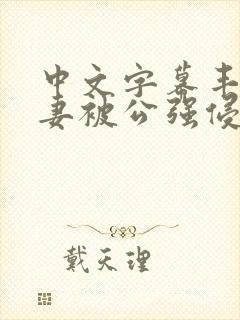 中文字幕丰
妻被公强侵
戴天理